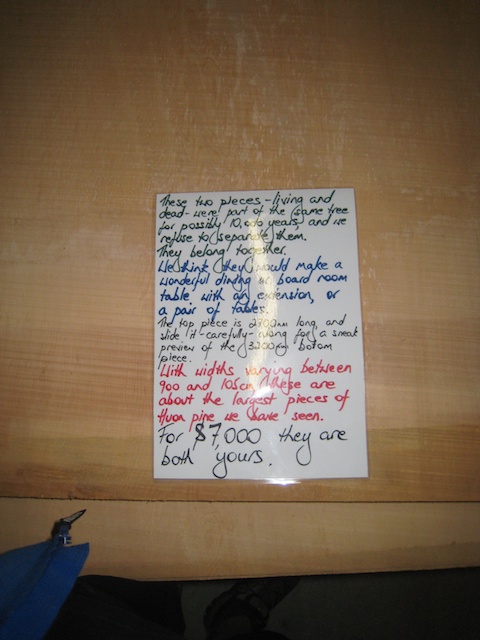 These two pieces - living and
dead - were part of the same tree
for possibly 10,000 years, and we
refuse to separate them.
They belong together.
We think they would make a
wonderful dining or board room
table with an extension, or
a pair of tables.
The top piece is 2700mm long, and
slide it - carefully - along for a sneak
preview of the 3200mm bottom
piece.
With widths varying between
900 and 105cm, these are
about the largest pieces of
Huon pine we have seen.
For $7,000 they are
both yours.